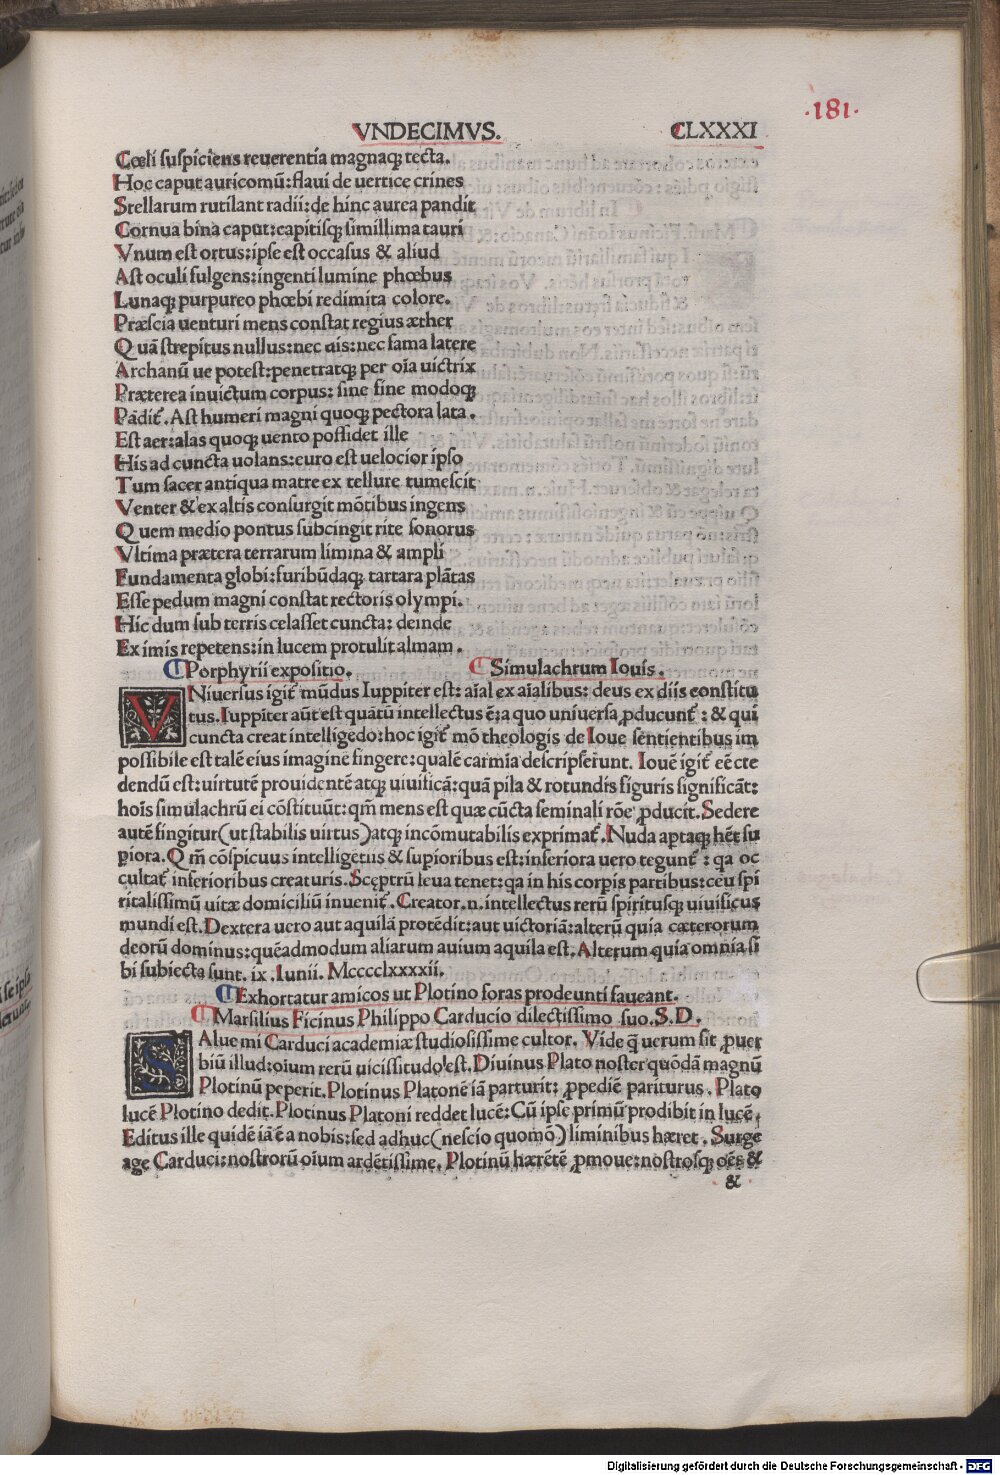 ·181·
VNDECIMVS. CLXXXI
Cœli suspiciens reuerentia magnaq; tecta.
Hoc caput auricomū: flaui de uertice crines
Stellarum rutilant radii: de hinc aurea pandit
Cornua bina caput: capitisq; simillima tauri
Vnum est ortus: ipse est occasus & aliud
Ast oculi fulgens: ingenti lumine phœbus
Lunaq; purpureo phœbi redimita colore.
Præscia uenturi mens constat regius æther
Quā strepitus nullus: nec uis: nec fama latere
Archanū ue potest: penetratq; per oīa uictrix
Præterea inuictum corpus: sine fine modoq;
Pādit̃. Ast humeri magni quoq; pectora lata.
Est aer: alas quoq; uento possidet ille
His ad cuncta uolans: euro est uelocior ipso
Tum sacer antiqua matre ex tellure tumescit
Venter & ex altis consurgit mōtibus ingens
Quem medio pontus subcingit rite sonorus
Vltima prætera terrarum limina & ampli
Fundamenta globi: furibūdaq; tartara plātas
Esse pedum magni constat rectoris olympi.
Hic dum sub terris celasset cuncta: deinde
Ex imis repetens: in lucem protulit almam.
¶Porphyrii expositio. ¶Simulachrum Iouis.
VNiuersus igit̃ mūdus Iuppiter est: aīal ex aīalibus: deus ex diis constitu
tus. Iuppiter aūt est quātū intellectus ē: a quo uniuersa ꝓducunt̃: & qui
cuncta creat intelligēdo: hoc igit̃ mō theologis de Ioue sentientibus im
possibile est talē eius imaginē fingere: qualē carmīa descripserunt. Iouē igit̃ eē cre
dendū est: uirtutē prouidentē atq; uiuificā: quā pila & rotundis figuris significāt:
hoīs simulachrū ei cōstituūt: qm̃ mens est quæ cūcta seminali rōe ꝓducit. Sedere
autē fingitur (ut stabilis uirtus) atq; incōmutabilis exprimat̃. Nuda aptaq; hēt su
ꝑiora. Qm̃ cōspicuus intelligetiis & supioribus est: inferiora uero tegunt̃: qa oc
cultat̃ inferioribus creaturis. Sceptrū leua tenet: qa in his corpis partibus: ceu spi
ritalissimū uitæ domiciliū inuenit̃. Creator .n. intellectus rerū spiritusq; uiuificus
mundi est. Dextera uero aut aquilā protēdit: aut uictoriā: alterū quia cæterorum
deorū dominus: quēadmodum aliarum auium aquila est. Alterum quia omnia si
bi subiecta sunt. ix. Iunii. Mcccclxxxxii.
¶Exhortatur amicos ut Plotino foras prodeunti faueant.
¶Marsilius Ficinus Philippo Carducio dilectissimo suo. S. D.
SAlue mi Carduci academiæ studiosissime cultor. Vide q̃ uerum sit ꝓuer
biū illud: oium rerū uicissitudo est. Diuinus Plato noster quōdā magnū
Plotinū peperit. Plotinus Platonē iā parturit: ꝓpediē pariturus. Plato
lucē Plotino dedit. Plotinus Platoni reddet lucē: Cū ipse primū prodibit in lucē,
Editus ille quidē iā ē a nobis: sed adhuc (nescio quomō) liminibus hæret. Surge
age Carduci: nostrorū oium ardētissime. Plotinū hærētē ꝓmoue: nostrosq; oēs &
&
Digitalisierung gefördert durch die Deutsche Forschungsgemeinschaft - DFG